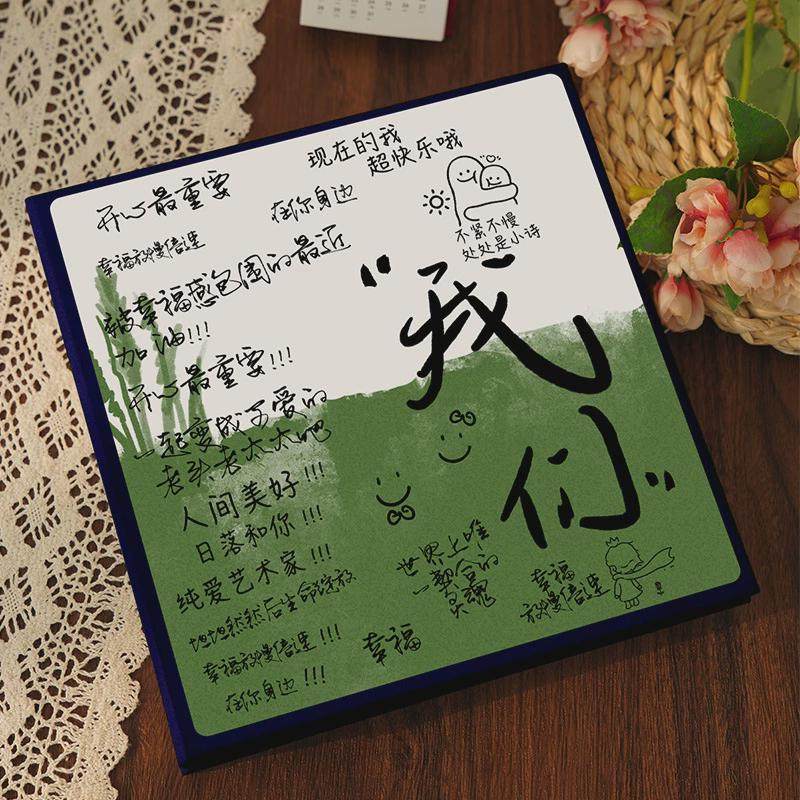 现在的我
超快乐哦
开心最重要
在你身边
不紧不慢
处处是小诗
幸福放慢倍速
被幸福感包围的最近
加油!!!
开心最重要!!!
一起变成可爱的
老头老太太吧
人间美好!!!
日落和你!!!
纯爱艺术家!!!
坦坦然然后生命绽放
幸福放慢倍速!!!
在你身边!!!
"我
们"
世界上唯
一契合的
灵魂
幸福
放慢倍速
幸福